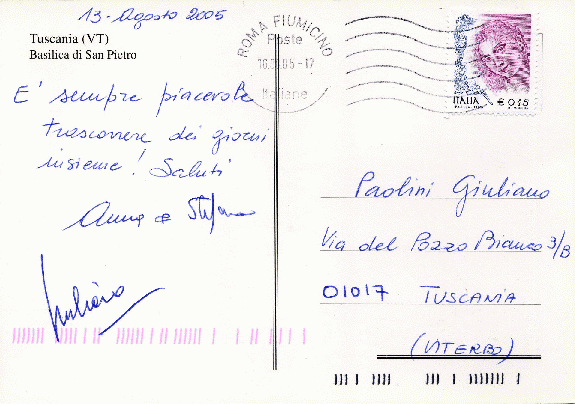 13 - Agosto 2005
Tuscania (VT)
Basilica di San Pietro
E' sempre piacevole
trascorrere dei giorni
insieme! Saluti
Anna e Stefano
ROMA FIUMICINO
Poste
16.08.05-17
Italiane
ITALIA
€ 0,45
Paolini Giuliano
Via del Pozzo Bianco 3/B
01017 TUSCANIA
(VITERBO)